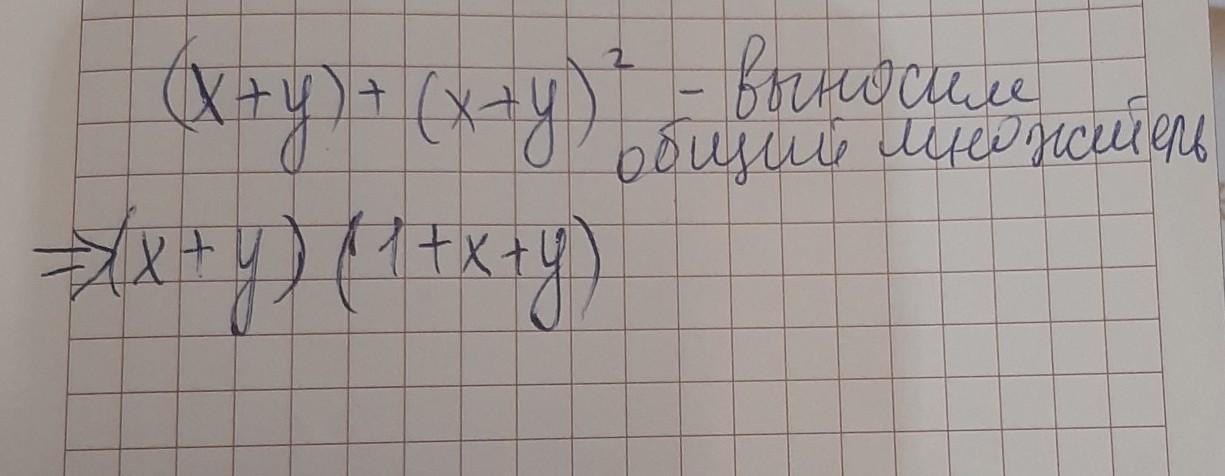 (x+y)+(x+y)² - выносим
общий множитель
=>(x+y)(1+x+y)